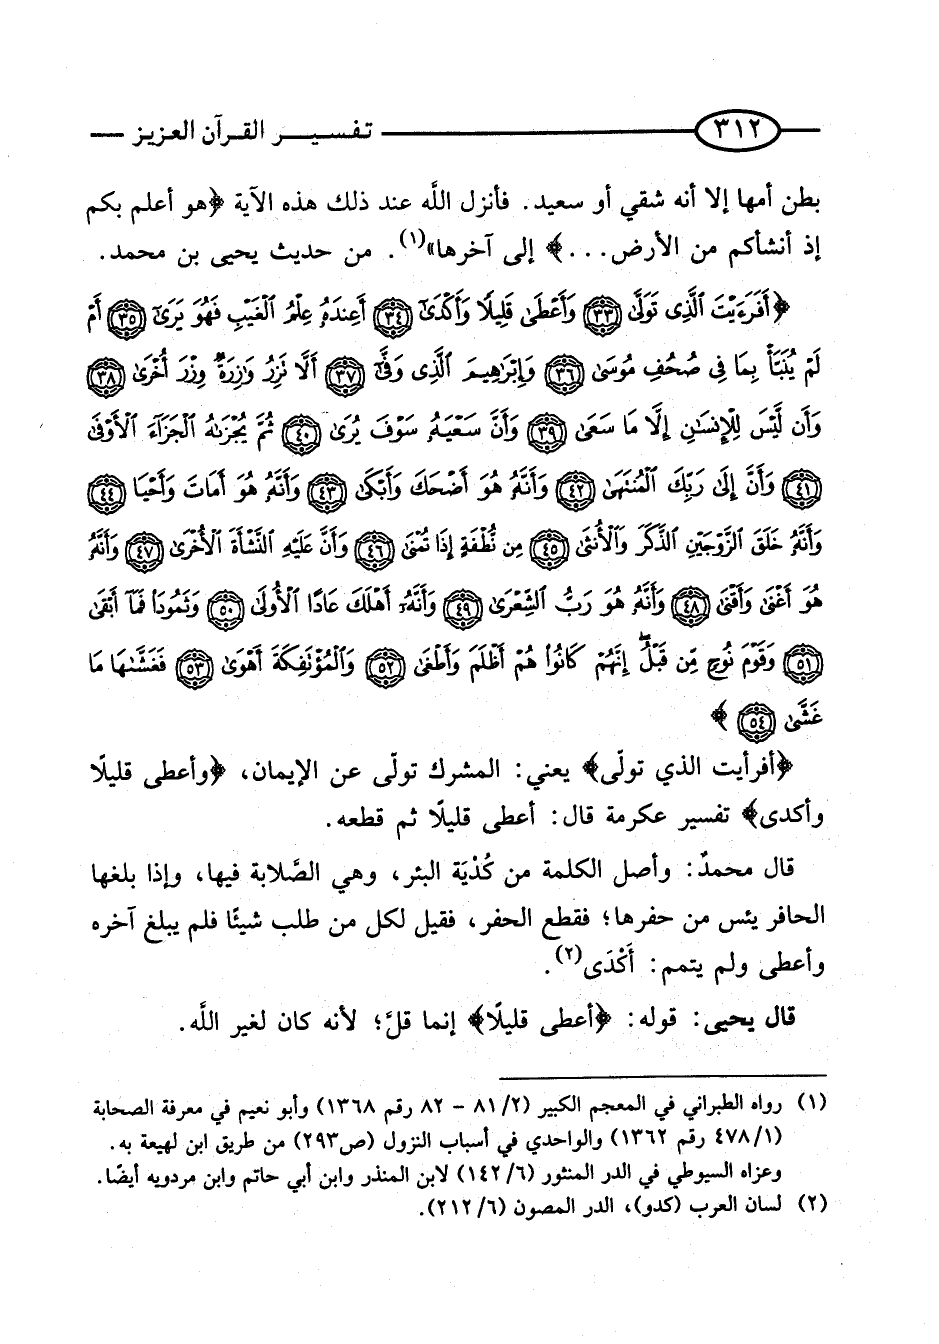 ٣١٢ تفسير القرآن العزيز
بطن أمها إلا أنه شقي أو سعيد. فأنزل اللَّه عند ذلك هذه الآية ﴿هو أعلم بكم
إذ أنشأكم من الأرض...﴾ إلى آخرها»(١). من حديث يحيى بن محمد.
﴿أَفَرَءَيْتَ ٱلَّذِى تَوَلَّىٰ ٣٣ وَأَعْطَىٰ قَلِيلًا وَأَكْدَىٰٓ ٣٤ أَعِندَهُۥ عِلْمُ ٱلْغَيْبِ فَهُوَ يَرَىٰٓ ٣٥ أَمْ
لَمْ يُنَبَّأْ بِمَا فِى صُحُفِ مُوسَىٰ ٣٦ وَإِبْرَٰهِيمَ ٱلَّذِى وَفَّىٰٓ ٣٧ أَلَّا نَزِرُ وَازِرَةٌ وِزْرَ أُخْرَىٰ ٣٨
وَأَن لَّيْسَ لِلْإِنسَـٰنِ إِلَّا مَا سَعَىٰ ٣٩ وَأَنَّ سَعْيَهُۥ سَوْفَ يُرَىٰ ٤٠ ثُمَّ يُجْزَىٰهُ ٱلْجَزَآءَ ٱلْأَوْفَىٰ
٤١ وَأَنَّ إِلَىٰ رَبِّكَ ٱلْمُنتَهَىٰ ٤٢ وَأَنَّهُۥ هُوَ أَضْحَكَ وَأَبْكَىٰ ٤٣ وَأَنَّهُۥ هُوَ أَمَاتَ وَأَحْيَا ٤٤
وَأَنَّهُۥ خَلَقَ ٱلزَّوْجَيْنِ ٱلذَّكَرَ وَٱلْأُنثَىٰ ٤٥ مِن نُّطْفَةٍ إِذَا تُمْنَىٰ ٤٦ وَأَنَّ عَلَيْهِ ٱلنَّشْأَةَ ٱلْأُخْرَىٰ ٤٧ وَأَنَّهُۥ
هُوَ أَغْنَىٰ وَأَقْنَىٰ ٤٨ وَأَنَّهُۥ هُوَ رَبُّ ٱلشِّعْرَىٰ ٤٩ وَأَنَّهُۥٓ أَهْلَكَ عَادًا ٱلْأُولَىٰ ٥٠ وَثَمُودَا۟ فَمَآ أَبْقَىٰ
٥١ وَقَوْمَ نُوحٍ مِّن قَبْلُ ۖ إِنَّهُمْ كَانُوا۟ هُمْ أَظْلَمَ وَأَطْغَىٰ ٥٢ وَٱلْمُؤْتَفِكَةَ أَهْوَىٰ ٥٣ فَغَشَّىٰهَا مَا
غَشَّىٰ ٥٤﴾
﴿أفرأيت الذي تولّى﴾ يعني: المشرك تولّى عن الإيمان، ﴿وأعطى قليلًا
وأكدى﴾ تفسير عكرمة قال: أعطى قليلًا ثم قطعه.
قال محمدٌ: وأصل الكلمة من كُدْيَة البئر، وهي الصَّلابة فيها، وإذا بلغها
الحافر يئس من حفرها؛ فقطع الحفر، فقيل لكل من طلب شيئًا فلم يبلغ آخره
وأعطى ولم يتمم: أَكْدَى(٢).
قال يحيى: قوله: ﴿أعطى قليلًا﴾ إنما قلَّ؛ لأنه كان لغير اللَّه.
(١) رواه الطبراني في المعجم الكبير (٨١/٢ - ٨٢ رقم ١٣٦٨) وأبو نعيم في معرفة الصحابة
(٤٧٨/١ رقم ١٣٦٢) والواحدي في أسباب النزول (ص٢٩٣) من طريق ابن لهيعة به.
وعزاه السيوطي في الدر المنثور (١٤٢/٦) لابن المنذر وابن أبي حاتم وابن مردويه أيضًا.
(٢) لسان العرب (كدو)، الدر المصون (٢١٢/٦).